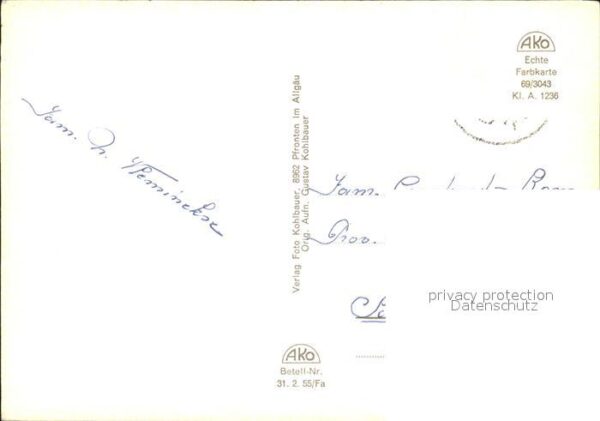 AKO
Echte
Farbkarte
69/3043
Kl. A. 1236
Fam. N. Vleminckx
Verlag Foto Kohlbauer, 8962 Pfronten im Allgäu
Orig. Aufn. Gustav Kohlbauer
Fam.
Prov.
privacy protection
Datenschutz
AKO
Bestell-Nr.
31. 2. 55/Fa